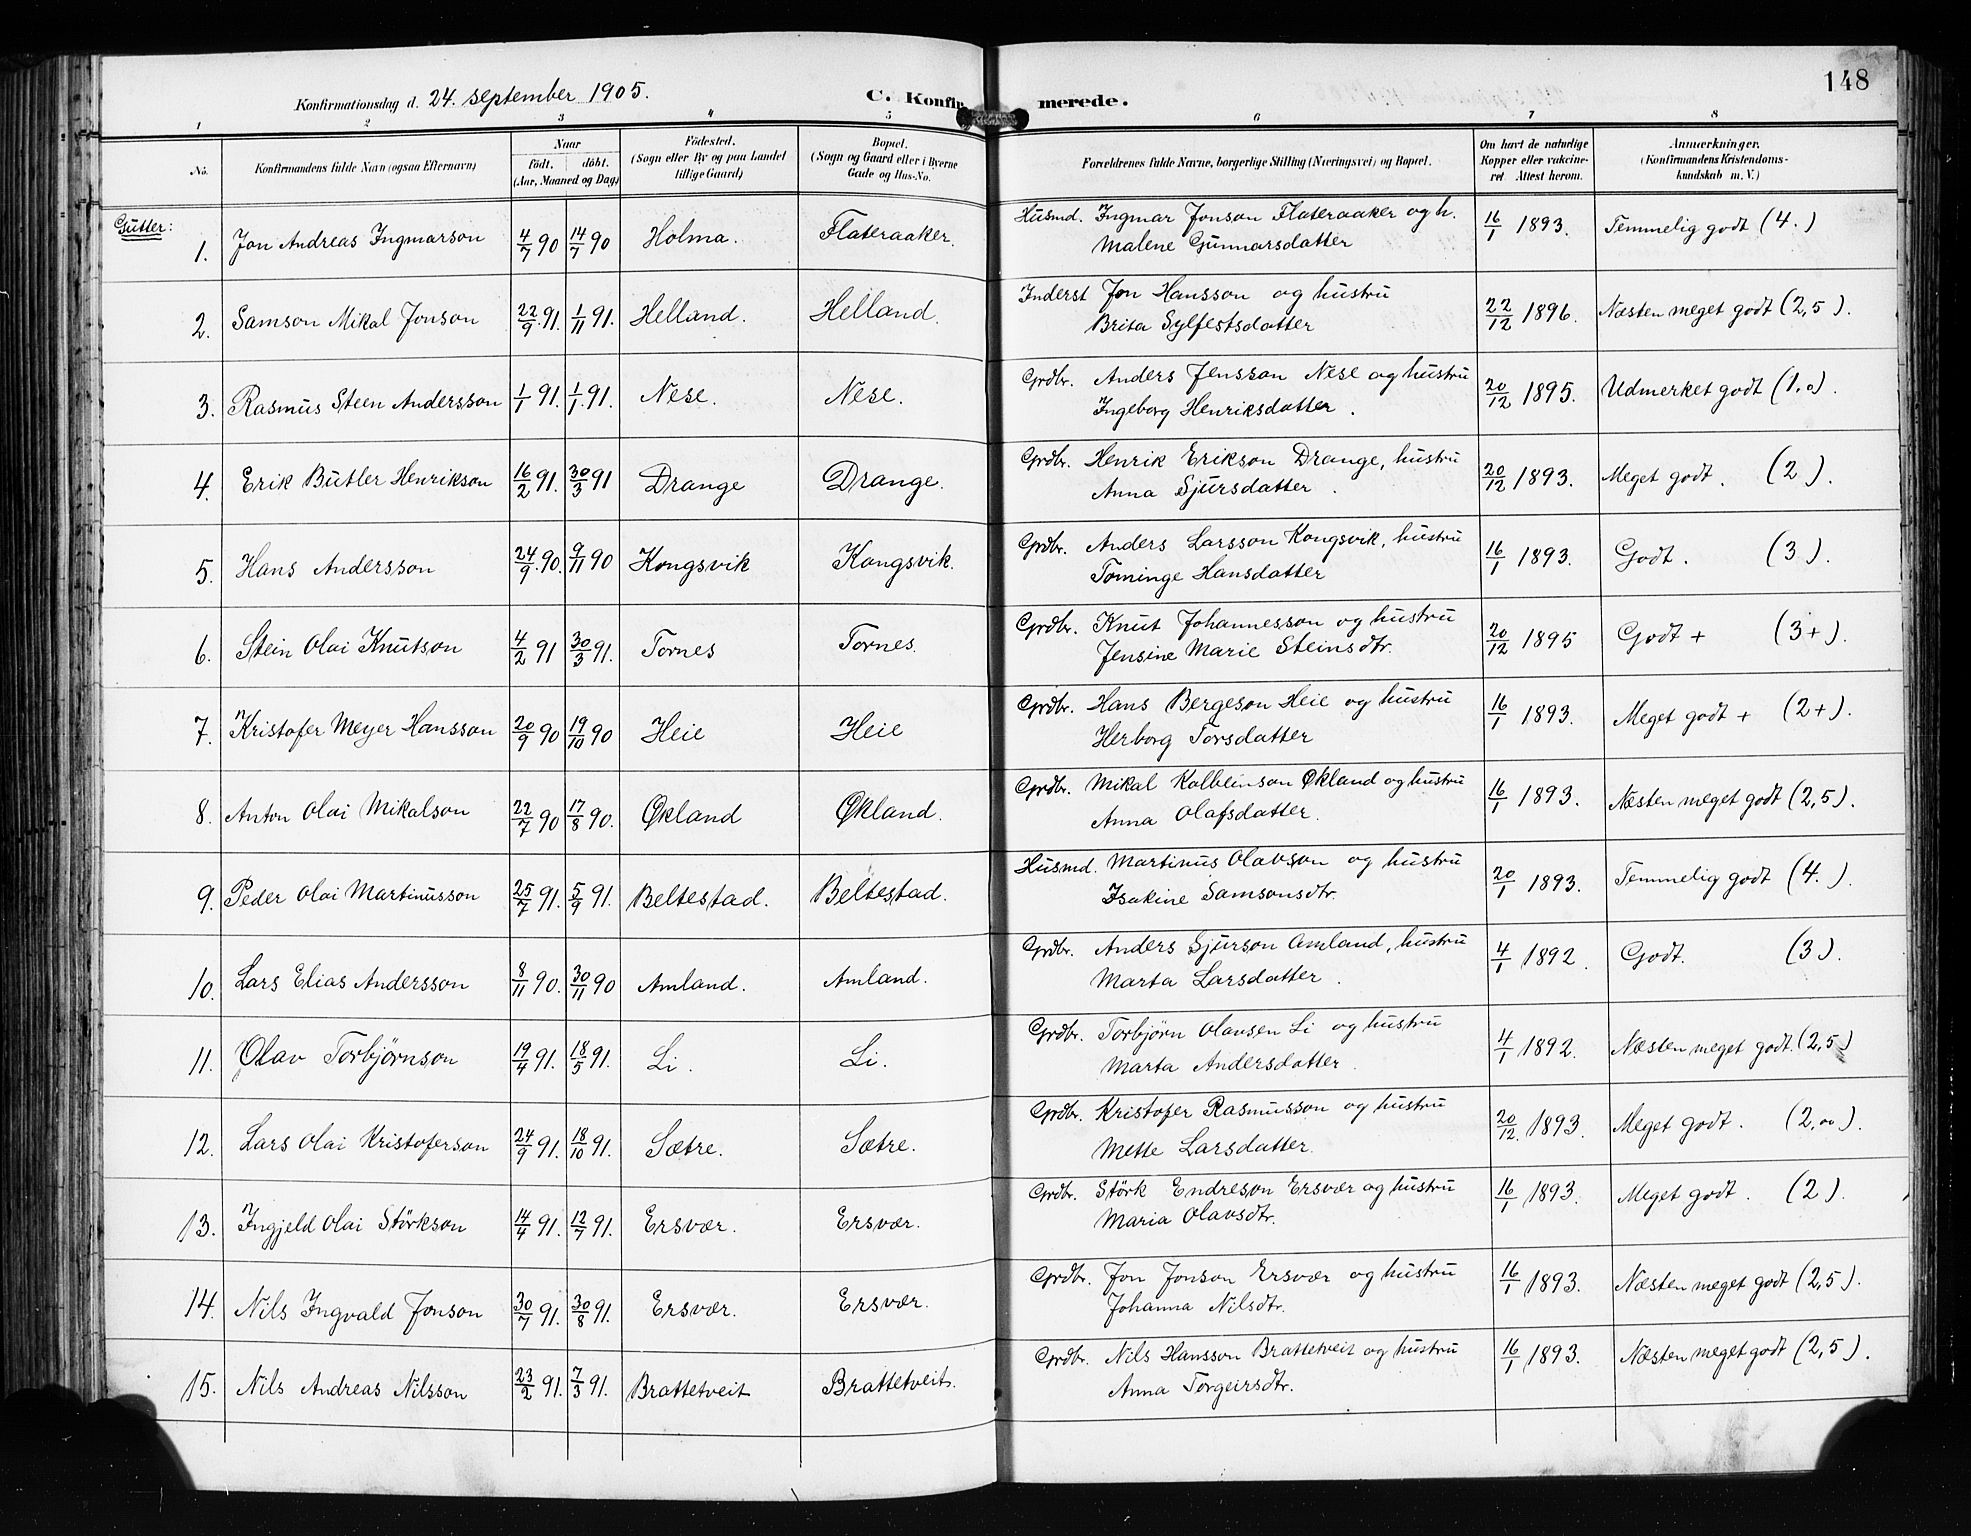 148
Konfirmationsdag d. 24. september 1905. C. Konfir merede.
1 2 3 4 5 6 7 8
No. Konfirmandens fulde Navn (ogsaa Efternavn) Naar födt. döbt. (Aar, Maaned og Dag) Födested. (Sogn eller By og paa Landet tillige Gaard) Bopæl. (Sogn og Gaard eller i Byerne Gade og Hus-No. Forældrenes fulde Navne, borgerlige Stilling (Næringsvei) og Bopæl. Om havt de naturlige Kopper eller vakcineret. Attest herom. Anmærkninger. (Konfirmandens Kristendomskundskab m. V.)
Gutter:
1. Jon Andreas Ingmarson 4/7 90 14/7 90 Holma. Flateraaker. Husmd. Ingmar Jonson Flateraaker og h. Malene Gunnarsdatter 16/1 1893. Temmelig godt (4.)
2. Samson Mikal Jonson 22/9 91. 1/11 91. Helland. Helland. Inderst Jon Hansson og hustru Brita Sylfestsdatter 22/12 1896. Næsten meget godt (2,5).
3. Rasmus Steen Andersson 1/1 91. 1/1 91. Nese. Nese. Grdbr. Anders Jensson Nese og hustru Ingeborg Henriksdatter. 20/12 1895. Udmerket godt (1,0).
4. Erik Butler Henrikson 16/2 91. 30/3 91 Drange Drange. Grdbr. Henrik Erikson Drange, hustru Anna Sjursdatter. 20/12 1893. Meget godt. (2).
5. Hans Andersson 24/9 90. 9/11 90 Kongsvik Kongsvik. Grdbr. Anders Larsson Kongsvik, hustru Tominge Hansdatter 16/1 1893. Godt. (3).
6. Stein Olai Knutson 4/2 91 30/3 91. Tornes Tornes. Grdbr. Knut Johannesson og hustru Jensine Marie Steinsdtr. 20/12 1895 Godt + (3+).
7. Kristofer Meyer Hansson 20/9 90 19/10 90 Heie Heie Grdbr. Hans Bergeson Heie og hustru Herborg Torsdatter 16/1 1893. Meget godt + (2+).
8. Anton Olai Mikalson 22/7 90 17/8 90. Økland Økland. Grdbr. Mikal Kolbeinson Økland og hustru Anna Olafsdatter. 16/1 1893. Næsten meget godt (2,5).
9. Peder Olai Martinusson 25/7 91. 5/9 91. Beltestad. Beltestad. Husmd. Martinus Olavson og hustru Isakine Samsonsdtr. 20/1 1893. Temmelig godt (4.).
10. Lars Elias Andersson 8/11 90. 30/11 90 Amland. Amland. Grdbr. Anders Sjurson Amland, hustru Marta Larsdatter. 4/1 1892. Godt. (3).
11. Olav Torbjørnson 19/4 91. 18/5 91. Li. Li. Grdbr. Torbjørn Olavsen Li og hustru Marta Andersdatter. 4/1 1892. Næsten meget godt. (2,5)
12. Lars Olai Kristoferson 24/9 91. 18/10 91. Sætre. Sætre. Grdbr. Kristofer Rasmusson og hustru Mette Larsdatter. 20/12. 1893. Meget godt. (2,00).
13. Ingjeld Olai Störkson 14/4 91. 12/7 91. Ersvær. Ersvær. Grdbr. Störk Endreson Ersvær og hustru Maria Olavsdtr. 16/1 1893. Meget godt. (2).
14. Nils Ingvald Jonson 30/7 91. 30/8 91. Ersvær. Ersvær. Grdbr. Jon Jonson Ersvær og hustru Johanna Nilsdtr. 16/1 1893. Næsten meget godt (2,5).
15. Nils Andreas Nilsson 23/2 91. 7/3 91. Brattetveit Brattetveit. Grdbr. Nils Hansson Brattetveit og hustru Anna Torgeirsdtr. 16/1 1893. Næsten meget godt (2,5).